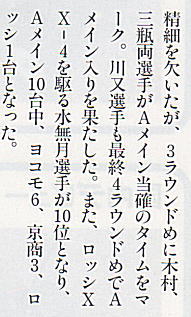 精細を欠いたが、3ラウンドめに木村、
三瓶両選手がAメイン当確のタイムをマ
ーク。川又選手も最終4ラウンドめでA
メイン入りを果たした。また、ロッシX
X-4を駆る水無月選手が10位となり、
Aメイン10台中、ヨコモ6、京商3、ロ
ッシ1台となった。